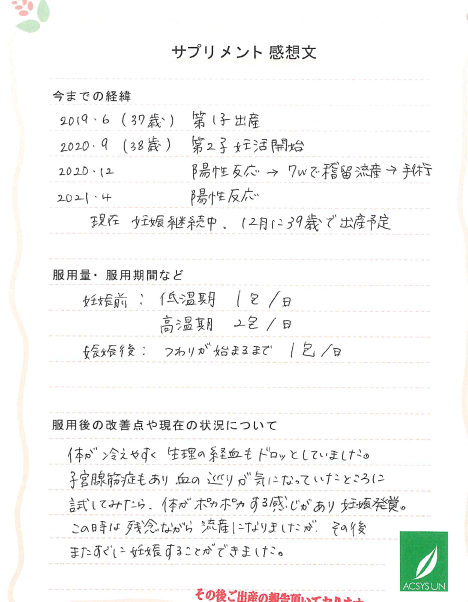 サプリメント 感想文
今までの経緯
2019・6 (37歳) 第1子出産
2020・9 (38歳) 第2子 妊活開始
2020・12 陽性反応 → 7wで稽留流産 → 手術
2021・4 陽性反応
現在 妊娠継続中、12月に39歳で出産予定
服用量・服用期間など
妊娠前： 低温期 1包/日
高温期 2包/日
妊娠後： つわりが始まるまで 1包/日
服用後の改善点や現在の状況について
体が冷えやすく 生理の経血もドロッとしていました。
子宮腺筋症もあり 血の巡りが気になっていたところに
試してみたら、体がポカポカする感じがあり 妊娠発覚。
この時は残念ながら 流産になりましたが、その後
またすぐに妊娠することができました。
ACSYS UN
その後ご出産の報告頂いております